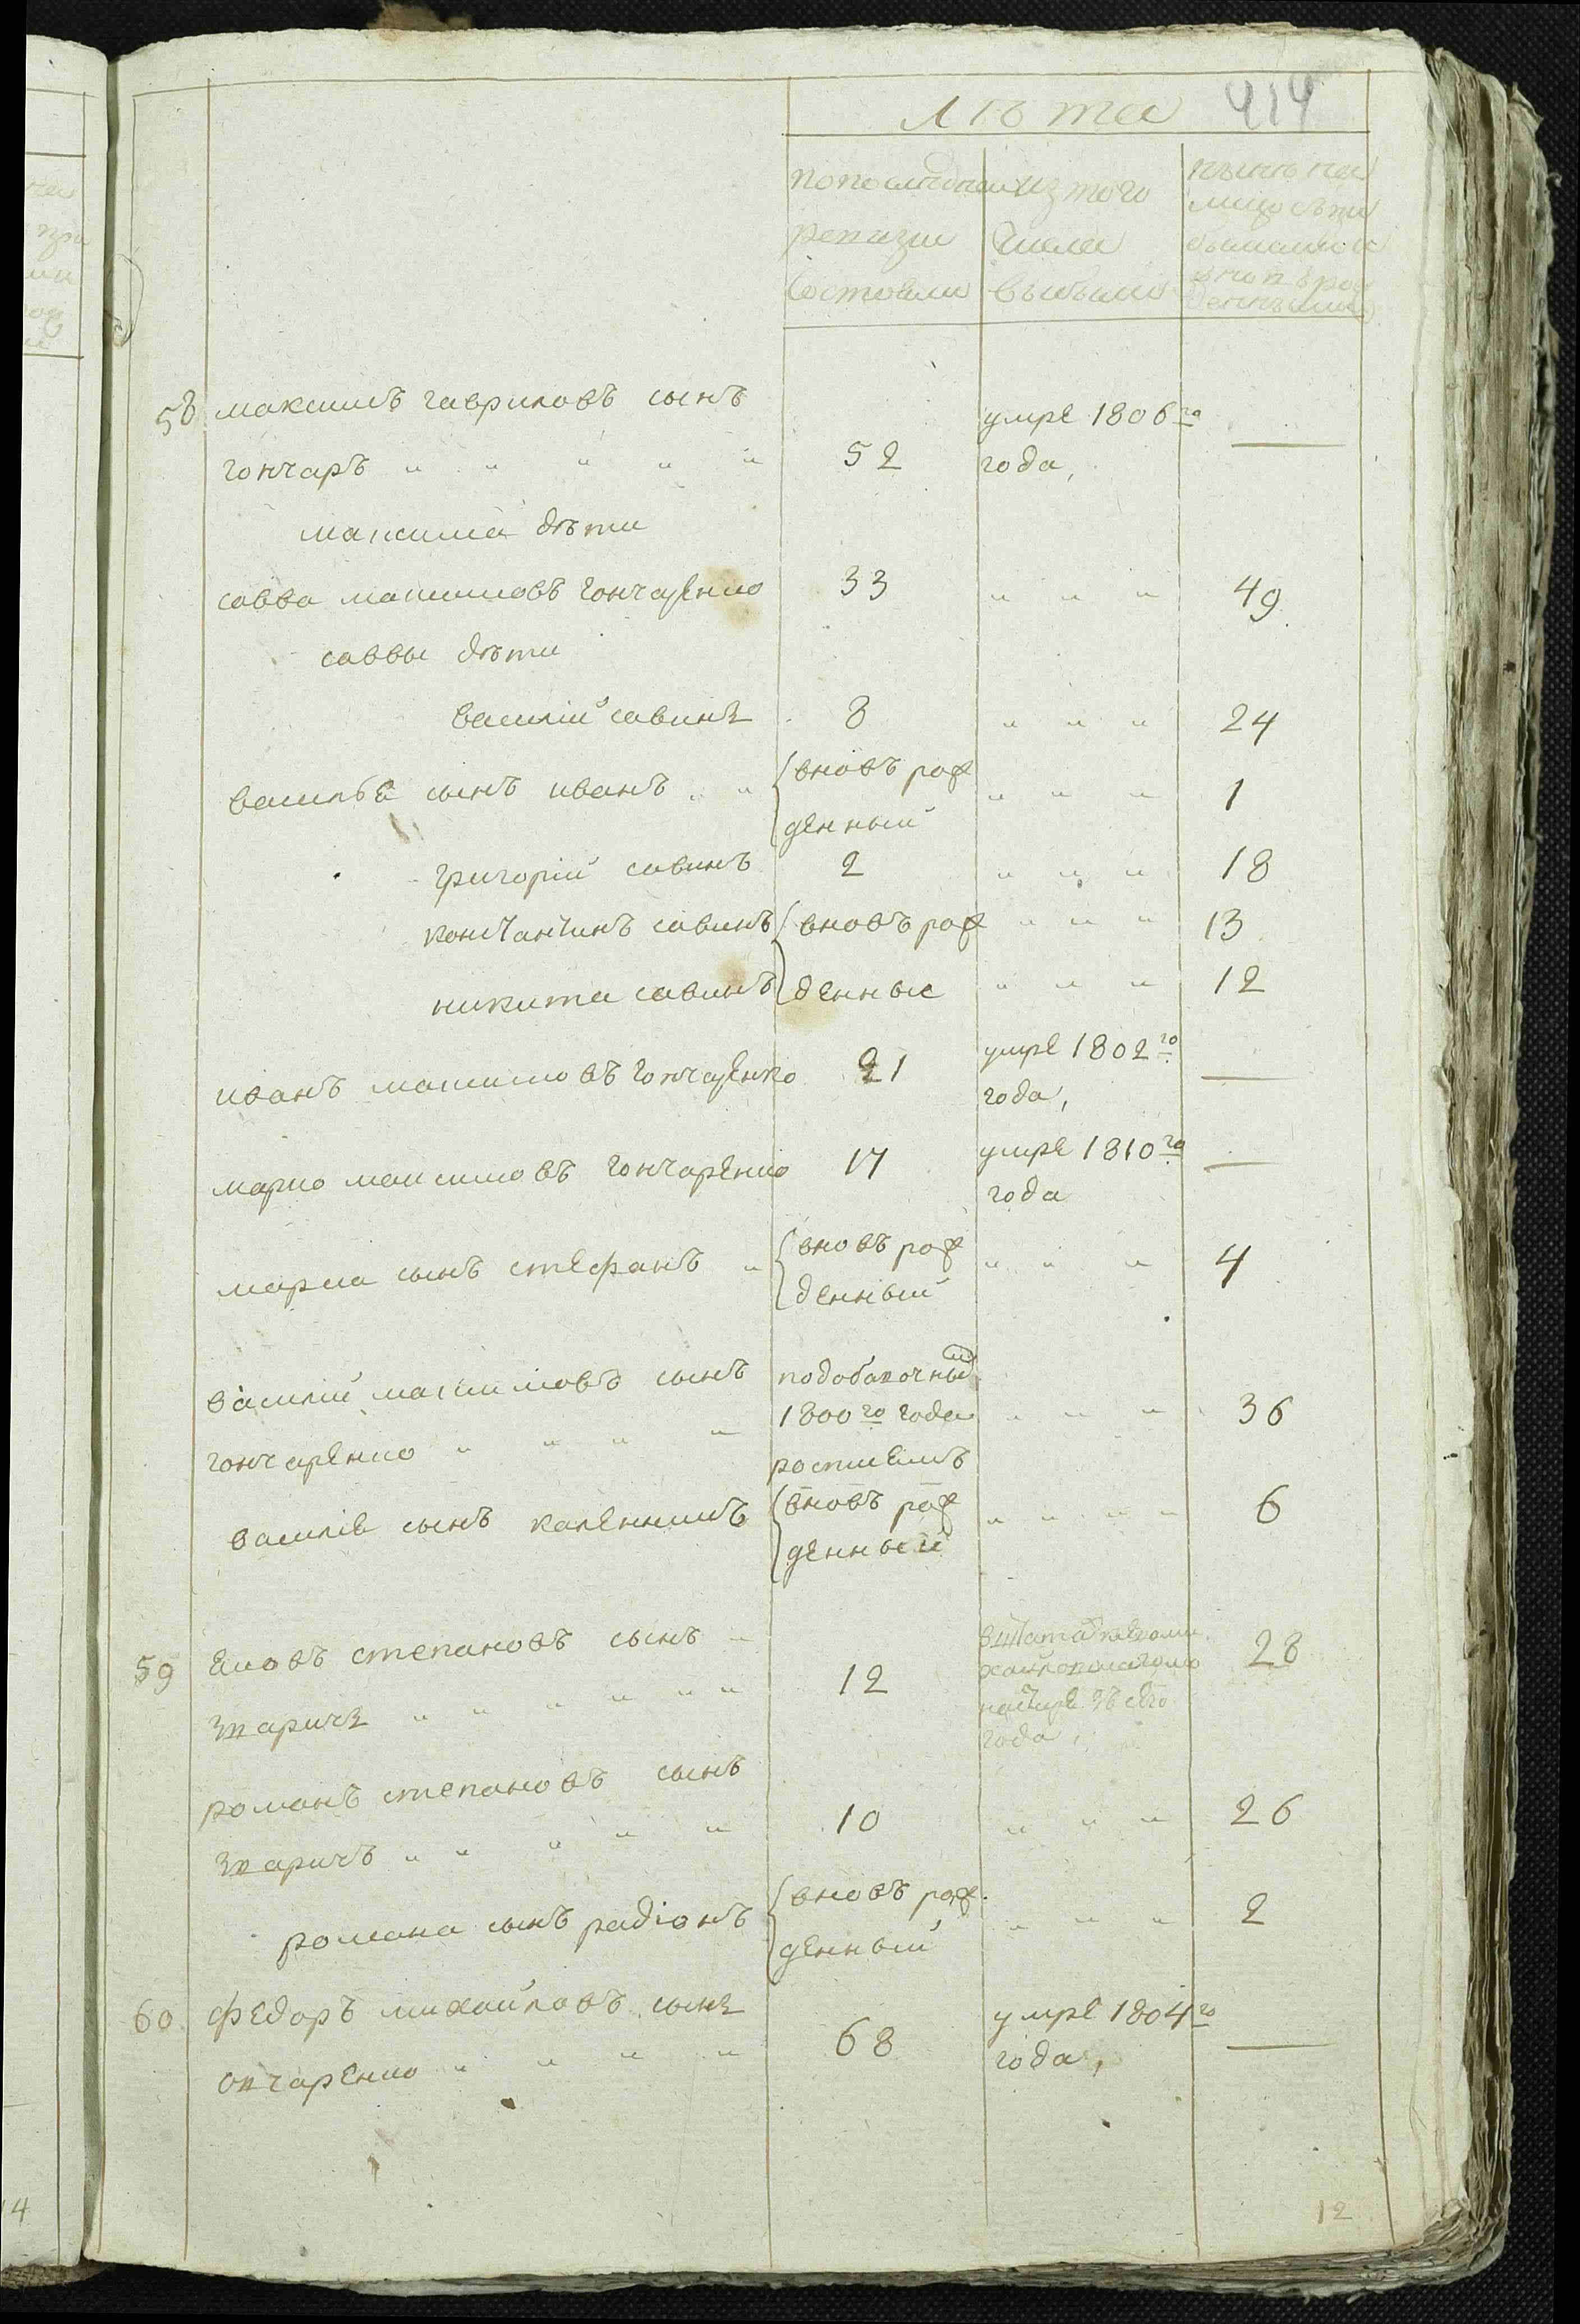 Лѣта 414
по последней ревизии состояли
изъ того числа выбыло
нынѣ на лицо съ прибылыми и вновь рожденными
58 максимъ гавриловъ сынъ
гончаръ 52 умре 1806го года,
максима дѣти
савва максимовъ гончаренко 33 49
саввы дѣти
василий савинъ 8 24
василье сынъ иванъ вновъ рож денный 1
григорий савинъ 2 18
константинъ савинъ вновъ рож 13
никита савинъ денные 12
иванъ максимовъ гончаренко 21 умре 1802го года,
марко максимовъ гончаренко 17 умре 1810го года
марка сынъ стефанъ вновъ рож денный 4
василий максимовъ сынъ подобавочный
гончаренко 1800го года 36
роспиемъ
василiе сынъ каленникъ вновъ рож денный 6
59 яковъ степановъ сынъ
12 28
года,
романъ степановъ сынъ
10 26
романа сынъ радіонъ вновъ рож денный 2
60 федоръ михайловъ сынъ
овчаренко 68 умре 1804го года,
12